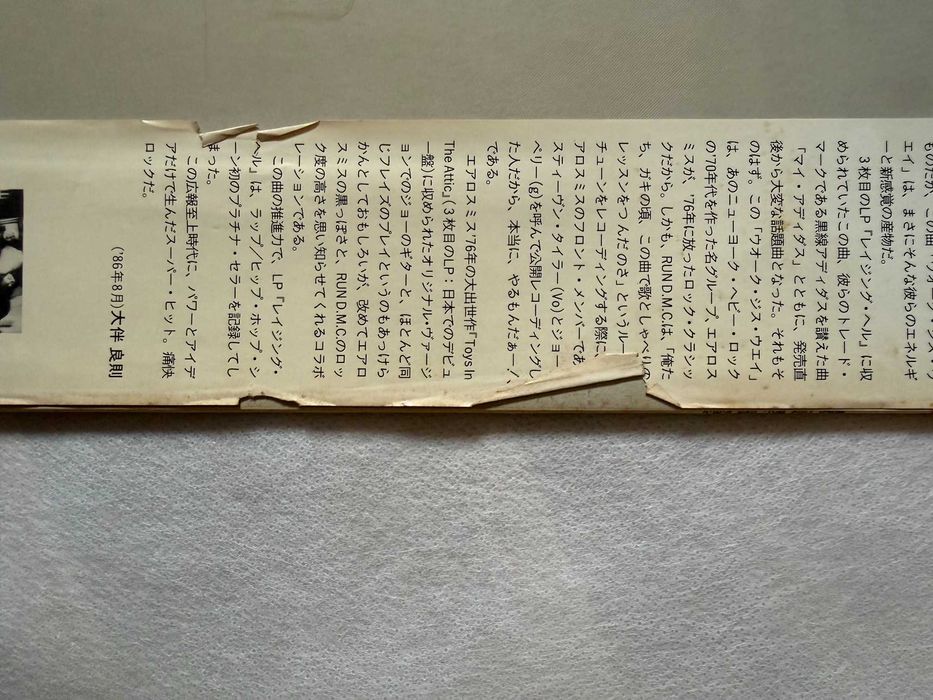 ものだが、この曲「ウォーク・ジス・ウ
エイ」は、まさにそんな彼らのエネルギ
ーと新感覚の産物だ。
3枚目のLP「レイジング・ヘル」に収
められていたこの曲、彼らのトレード・
マークである黒線アディダスを讃えた曲
「マイ・アディダス」とともに、発売直
後から大変な話題曲となった。それもそ
のはず。この「ウオーク・ジス・ウエイ」
は、あのニューヨーク・ヘビー・ロック
の'70年代を作った名グループ、エアロス
ミスが、'76年に放ったロック・クラシッ
クだから。しかも、RUN D.M.C.は、「俺た
ち、ガキの頃、この曲で歌としゃべりの
レッスンをつんだのさ」というルー
チューンをレコーディングする際に
アロスミスのフロント・メンバーであ
スティーヴン・タイラー(Vo)とジョー・
ペリー(g)を呼んで公開レコーディングし
た人だから、本当に、やるもんだぁ〜/、
である。
エアロスミス'76年の大出世作「Toys In
The Attic」(3枚目のLP:日本でのデビュ
ー盤)に収められたオリジナル・ヴァージ
ョンでのジョーのギターと、ほとんど同
じフレイズのプレイというのもあっけら
かんとしておもしろいが、改めてエアロ
スミスの黒っぽさと、RUN D.M.C.のロッ
ク度の高さを思い知らせてくれるコラボ
レーションである。
この曲の推進力で、LP「レイジング・
ヘル」は、ラップ/ヒップ・ホップ・シ
ーン初のプラチナ・セラーを記録してし
まった。
この広報至上時代に、パワーとアイデ
アだけで生んだスーパー・ヒット。痛快
ロックだ。
('86年8月)大伴 良則